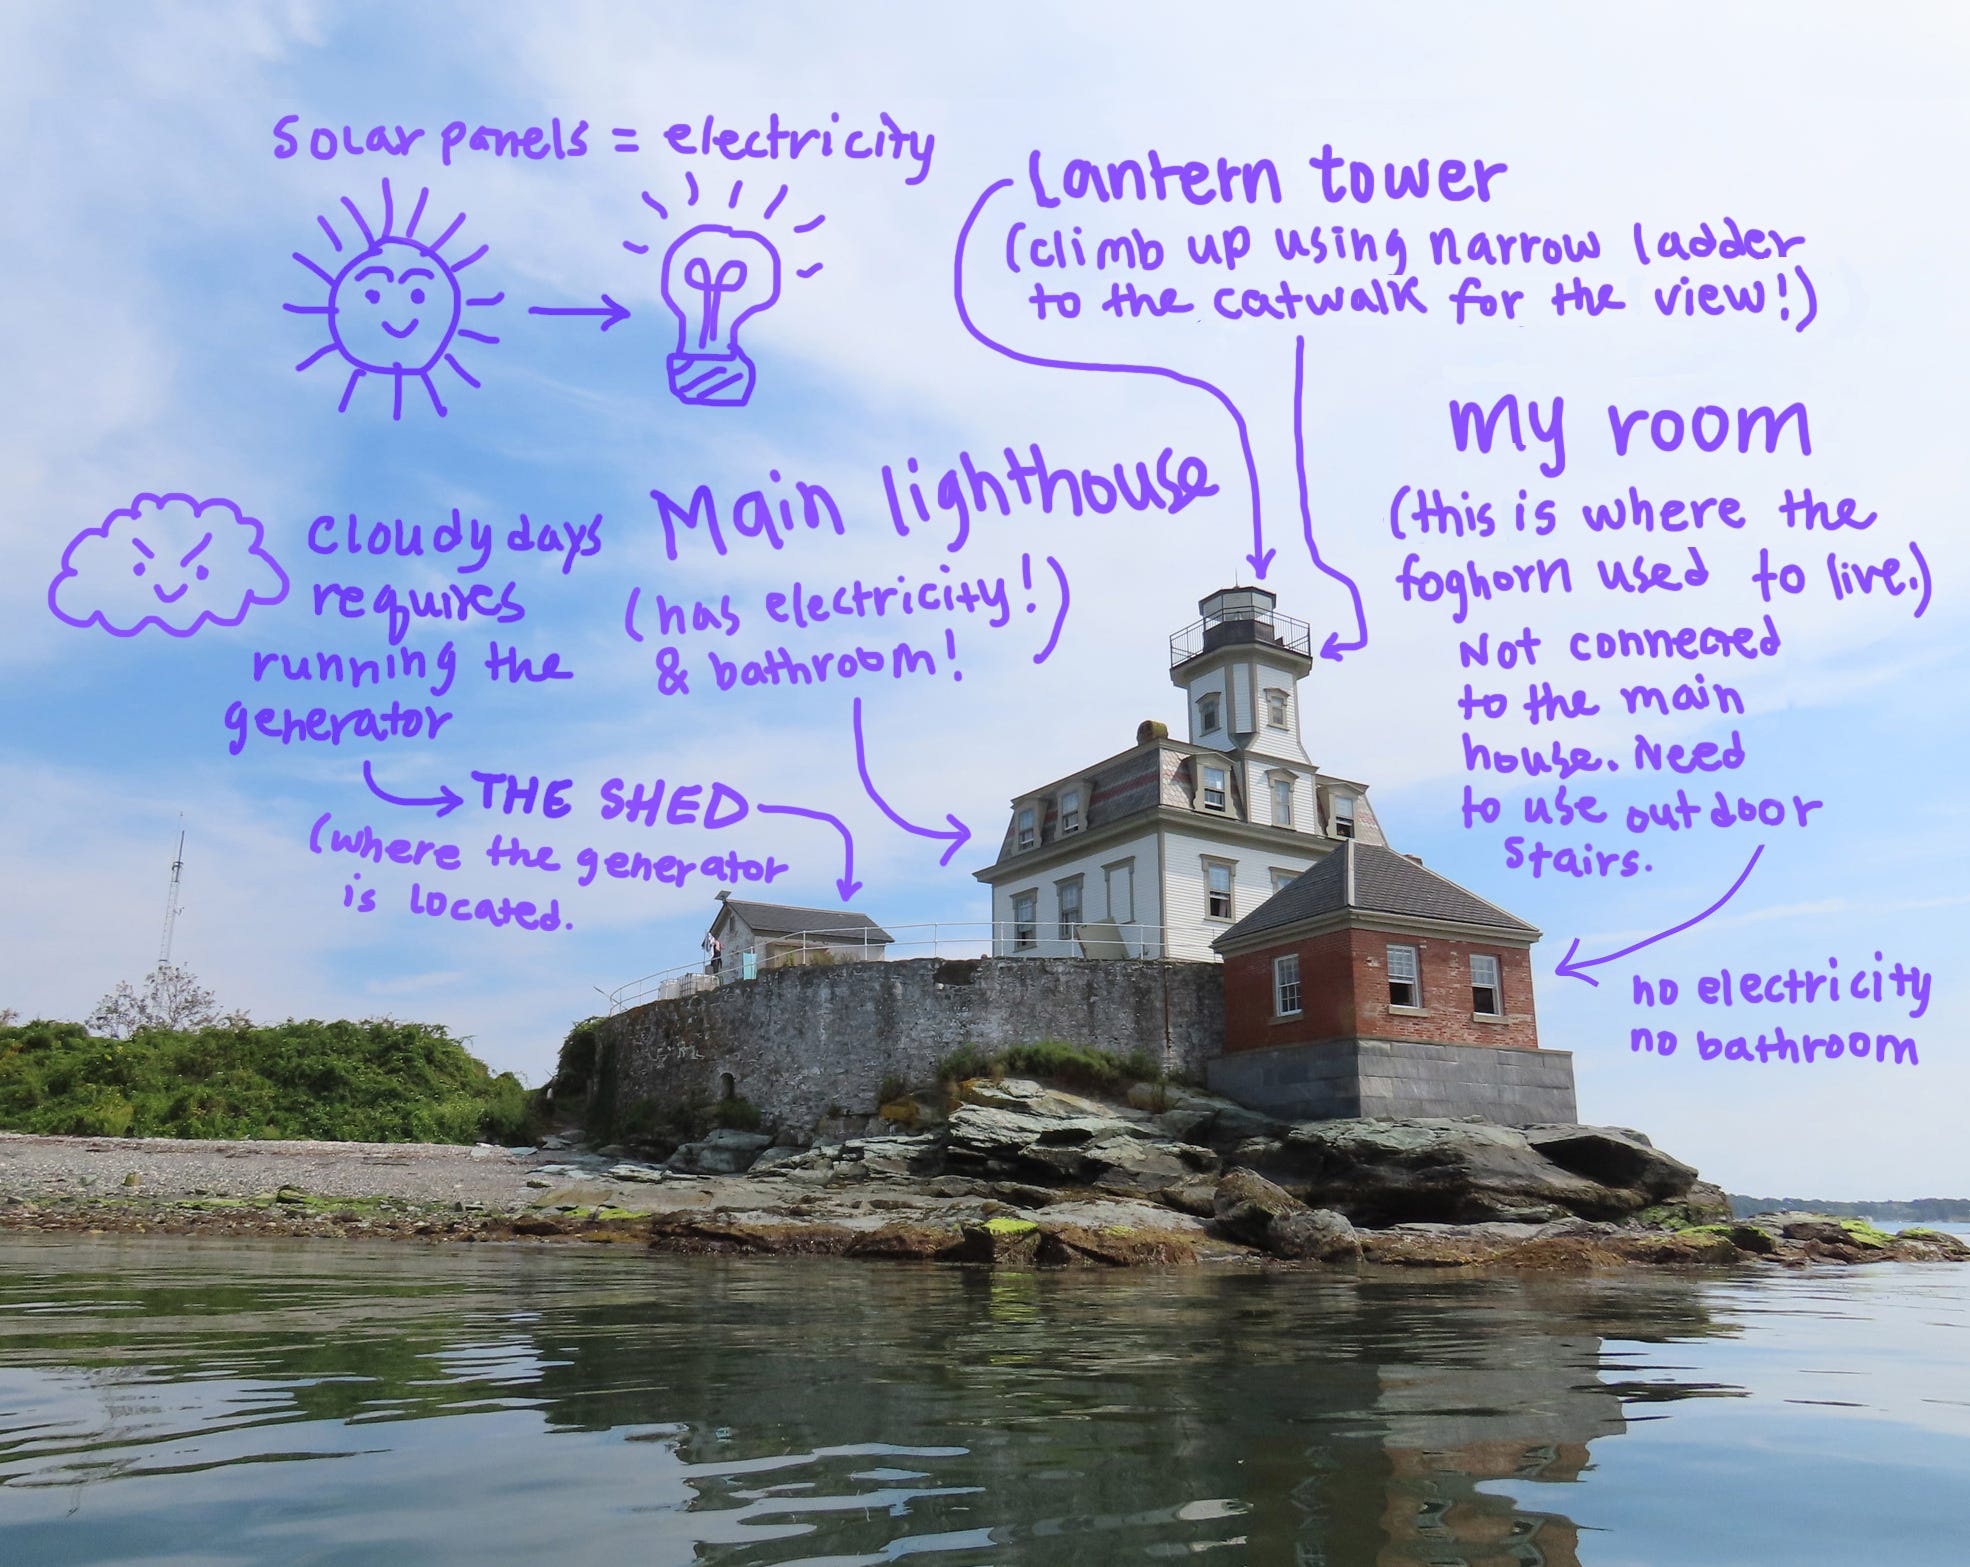 Solar panels = electricity
Lantern tower
(climb up using narrow ladder
to the catwalk for the view!)
My room
(this is where the
foghorn used to live.)
Not connected
to the main
house. Need
to use outdoor
stairs.
no electricity
no bathroom
Main lighthouse
(has electricity!)
& bathroom!
Cloudy days
requires
running the
generator
THE SHED
(where the generator
is located.